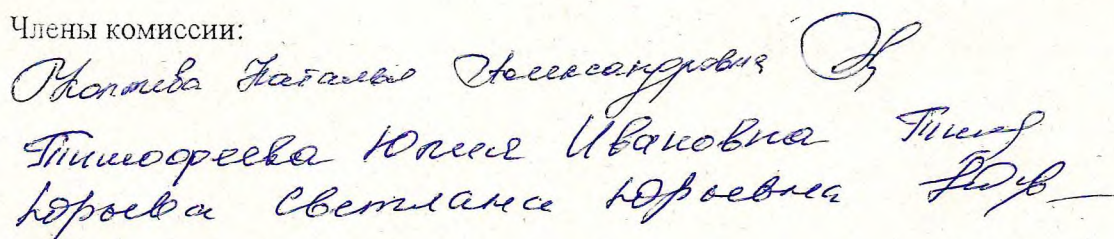 Члены комиссии:
Коптева Наталья Александровна
Тимофеева Юлия Ивановна Тимф
Юрьева Светлана Юрьевна